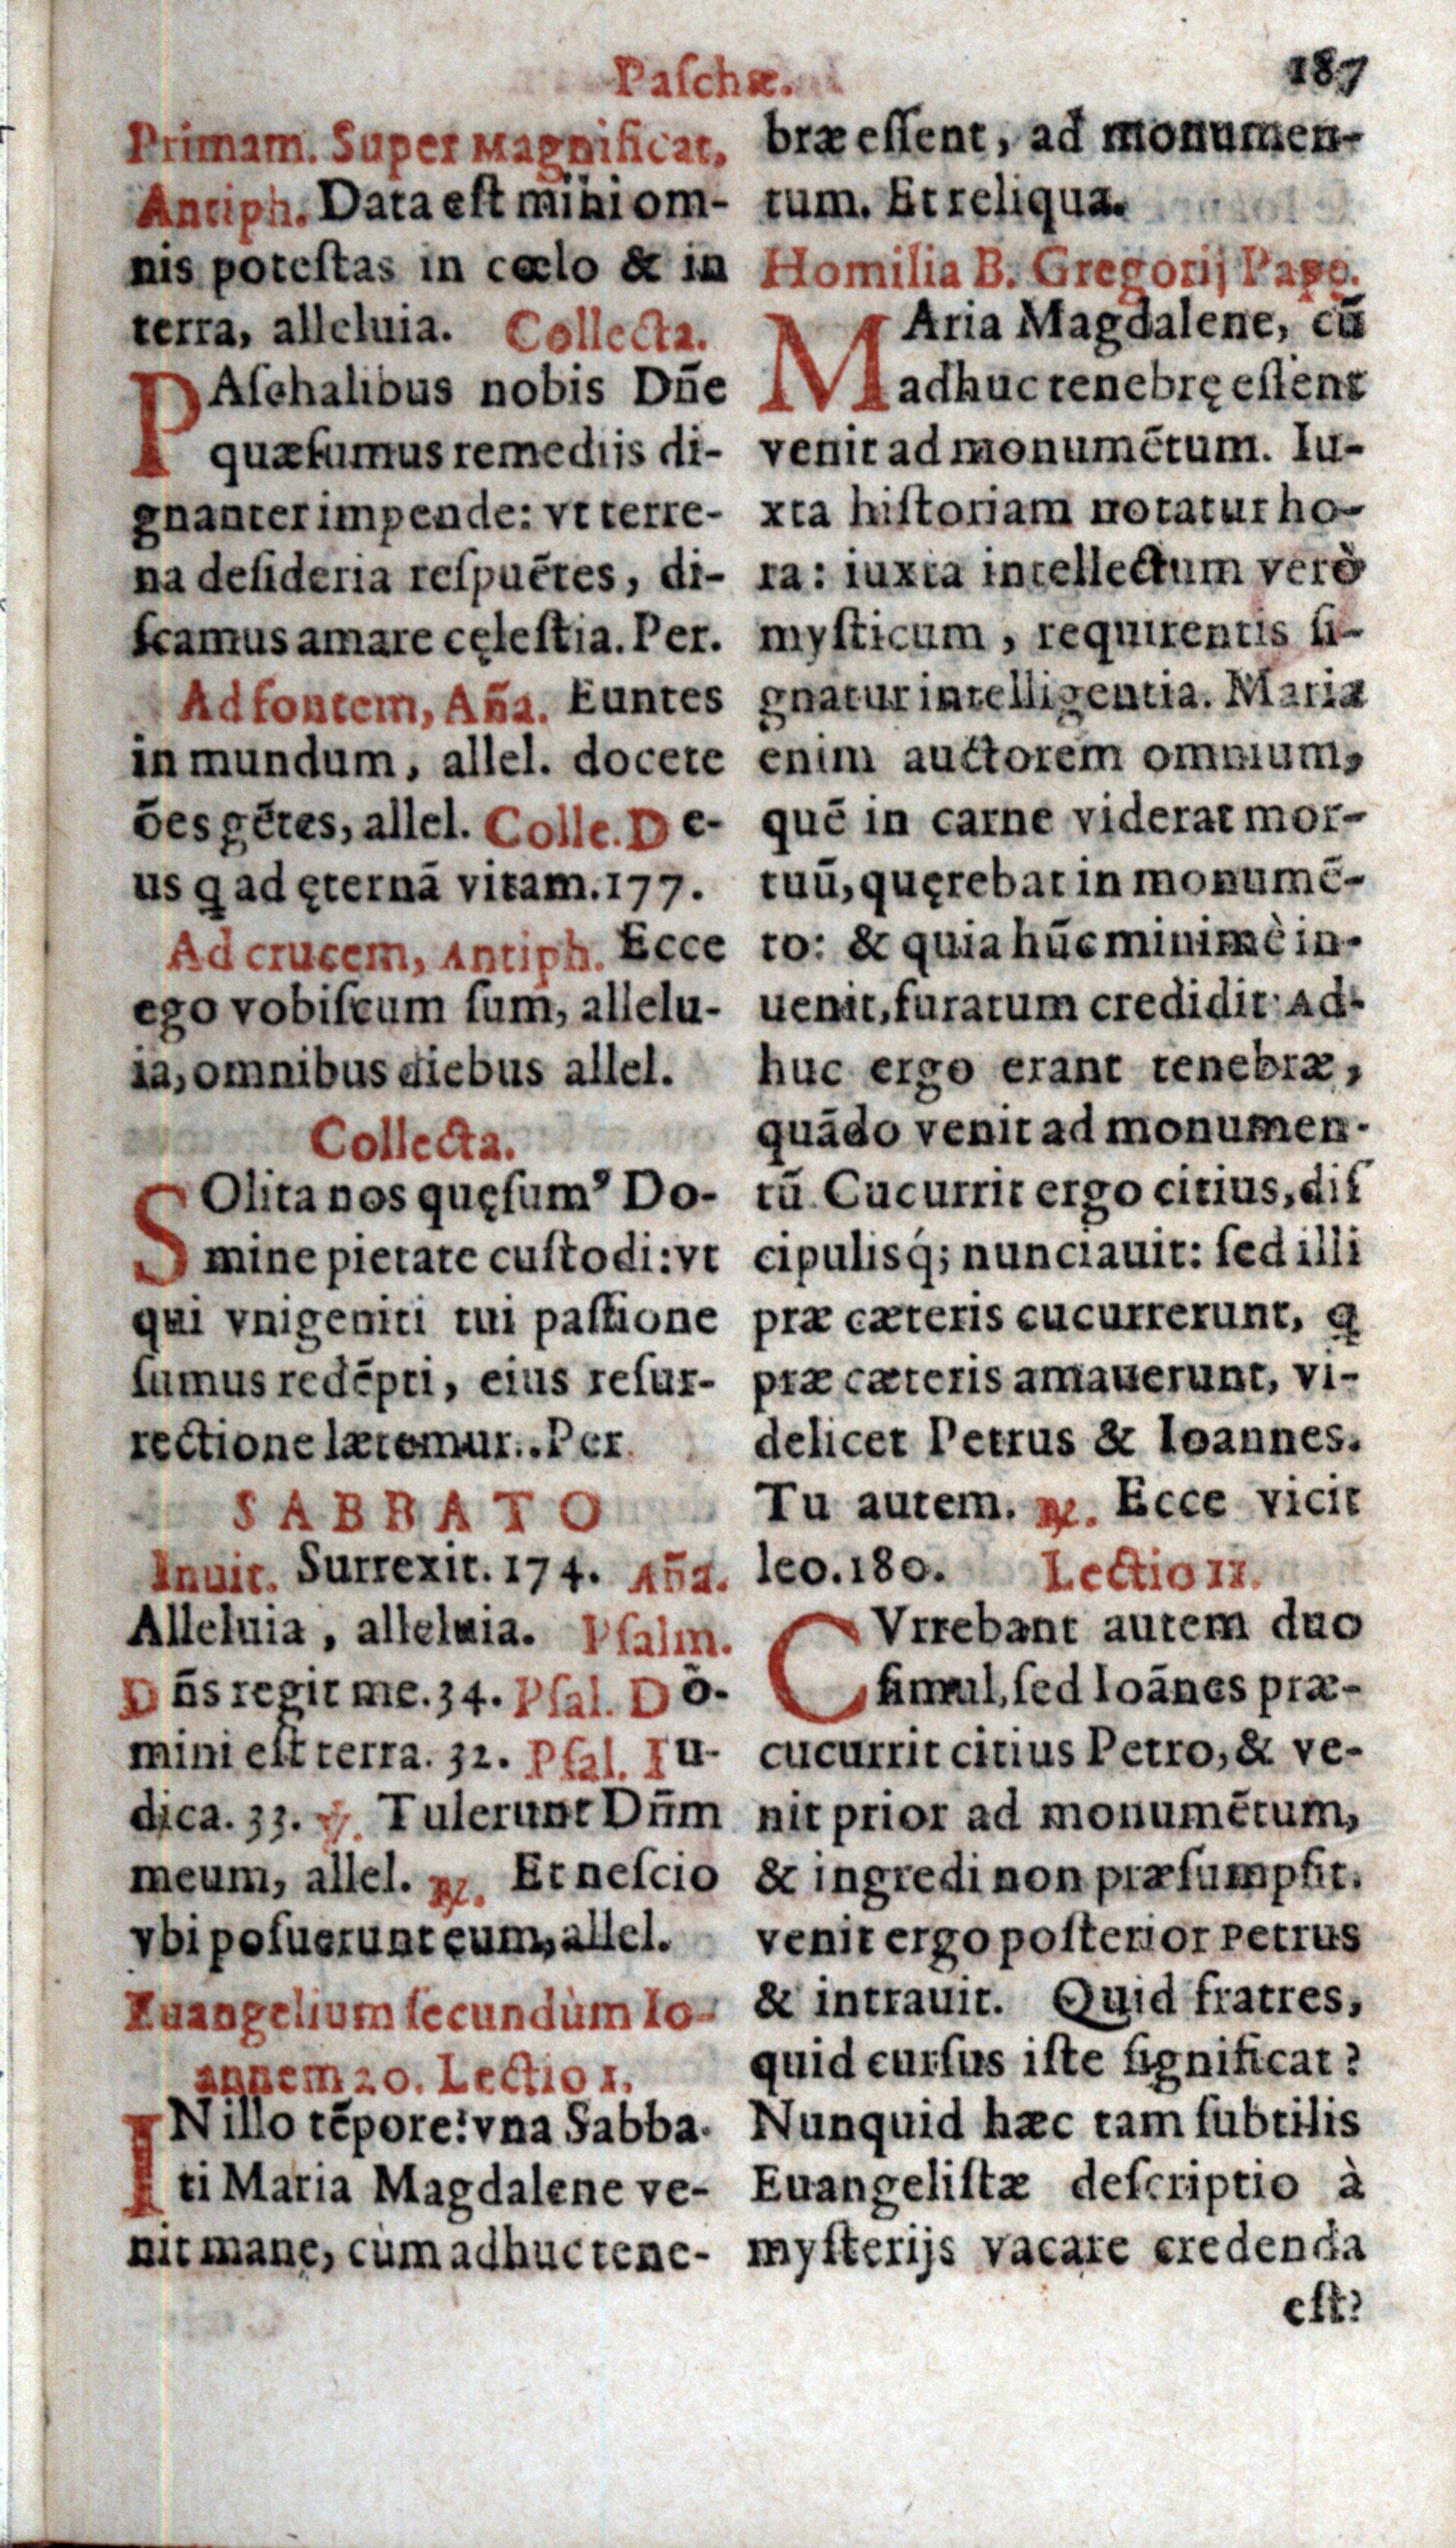 Paſchæ. 187
Primam. Super Magnificat,
Antiph. Data eſt mihi om-
nis poteſtas in cœlo & in
terra, alleluia. Collecta.
PAſchalibus nobis Dñe
quæſumus remediis di-
gnanter impende: vt terre-
na deſideria reſpuētes, di-
ſcamus amare cęleſtia. Per.
Ad fontem, Aña. Euntes
in mundum, allel. docete
ōes gētes, allel. Colle. De-
us q ad ęternā vitam. 177.
Ad crucem, Antiph. Ecce
ego vobiſcum ſum, allelu-
ia, omnibus diebus allel.
Collecta.
SOlita nos quęſumꝰ Do-
mine pietate cuſtodi: vt
qui vnigeniti tui paſſione
ſumus redēpti, eius reſur-
rectione lætemur.. Per.
SABBATO
Inuit. Surrexit. 174. Aña.
Alleluia, alleluia. Pſalm.
Dñs regit me. 34. Pſal. Dō-
mini eſt terra. 32. Pſal. Iu-
dica. 33. ℣. Tulerunt Dñm
meum, allel. ℟. Et neſcio
vbi poſuerunt eum, allel.
Euangelium ſecundùm Io-
annem 20. Lectio 1.
IN illo tēpore: vna Sabba-
ti Maria Magdalene ve-
nit mane, cùm adhuc tene-
bræ eſſent, ad monumen-
tum. Et reliqua.
Homilia B. Gregorij Papę.
MAria Magdalene, cū
adhuc tenebrę eſſent
venit ad monumētum. Iu-
xta hiſtoriam notatur ho-
ra: iuxta intellectum verò
myſticum, requirentis ſi-
gnatur intelligentia. Maria
enim auctorem omnium,
quē in carne viderat mor-
tuū, quęrebat in monumē-
to: & quia hūc minimè in-
uenit, furatum credidit: Ad-
huc ergo erant tenebræ,
quādo venit ad monumen-
tū. Cucurrit ergo citius, diſ
cipulisq́; nunciauit: ſed illi
præ cæteris cucurrerunt, q
præ cæteris amauerunt, vi-
delicet Petrus & Ioannes.
Tu autem. ℟. Ecce vicit
leo. 180. Lectio II.
CVrrebant autem duo
ſimul, ſed Ioānes præ-
cucurrit citius Petro, & ve-
nit prior ad monumētum,
& ingredi non præſumpſit.
venit ergo poſterior Petrus
& intrauit. Quid fratres,
quid curſus iſte ſignificat?
Nunquid hæc tam ſubtilis
Euangeliſtæ deſcriptio à
myſterijs vacare credenda
eſt?